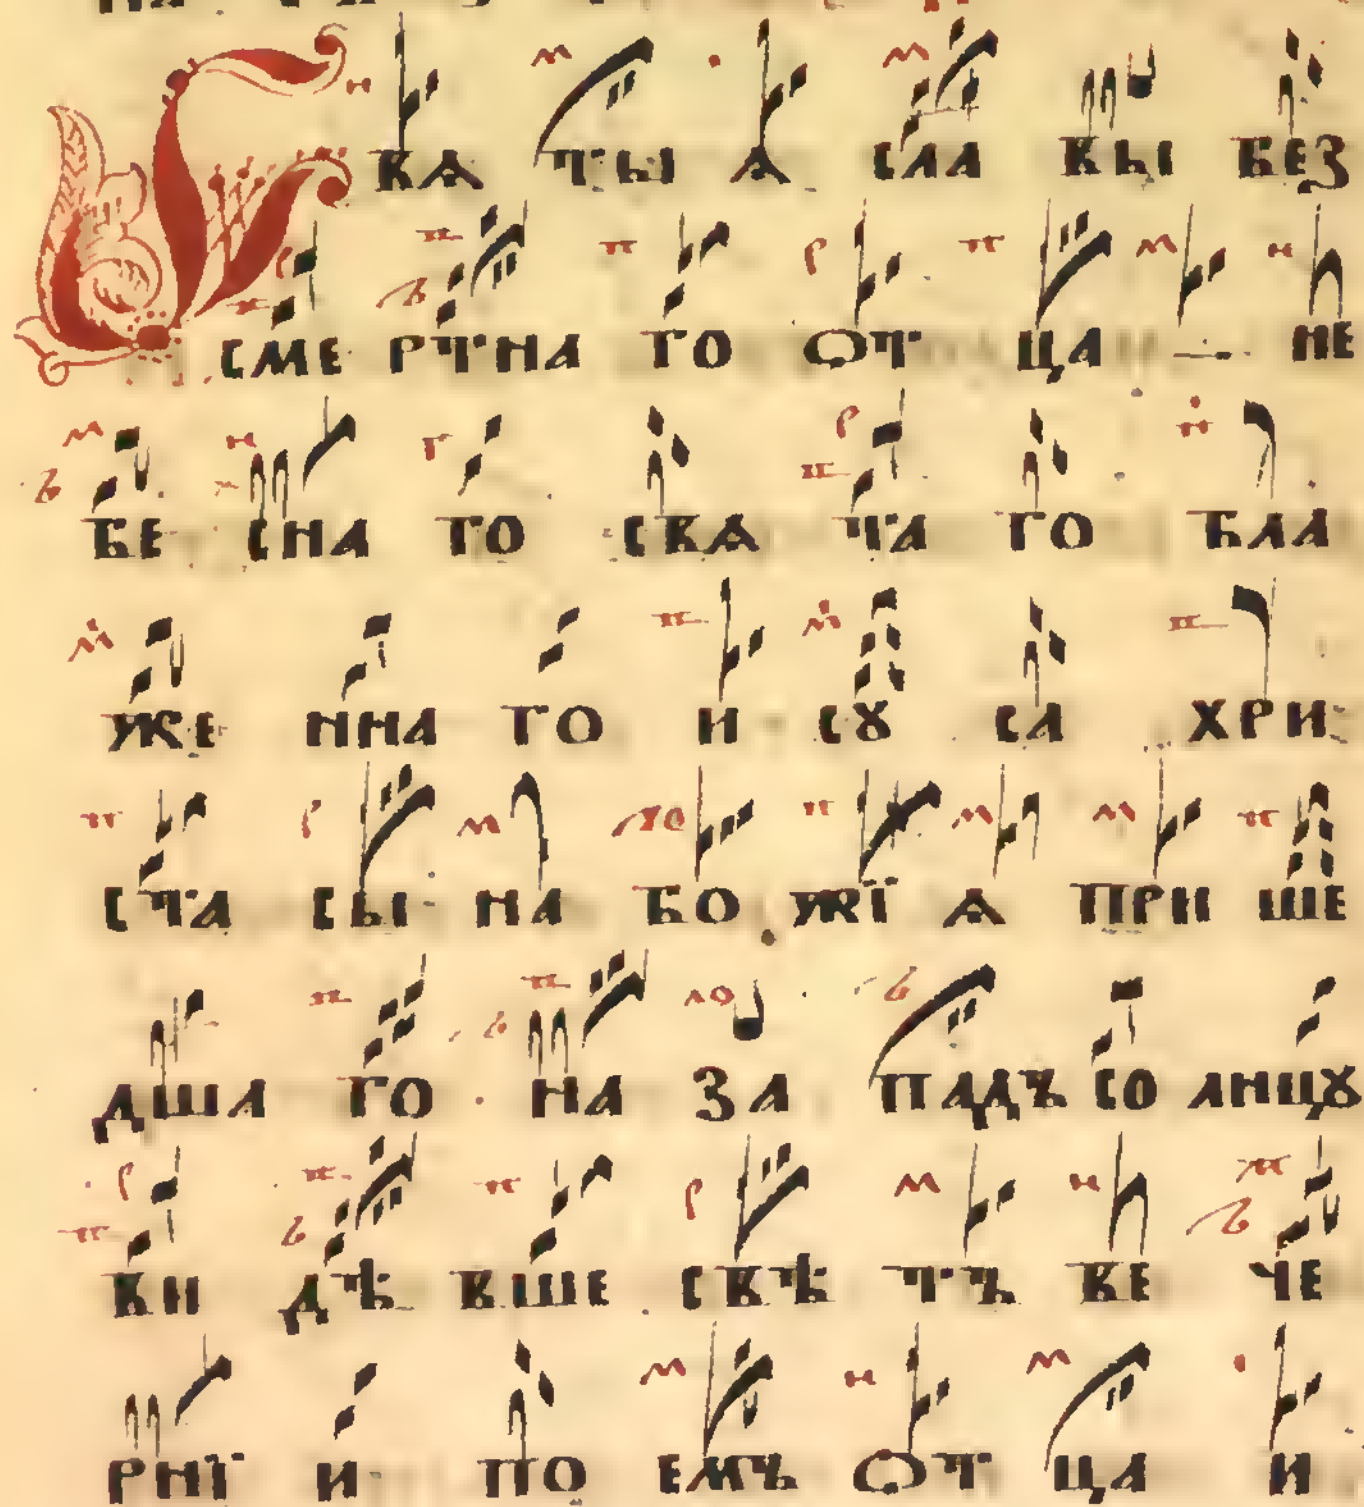 Свѧ ты ѧ сла вы без
сме ртна го от ца не
бе сна го свѧ та го бла
же нна го и сꙋ са хри
ста сы на бо жї ѧ при ше
дша го на за падъ со лнцꙋ
ви дѣ вше свѣ тъ ве че
рнї и по емъ от ца и